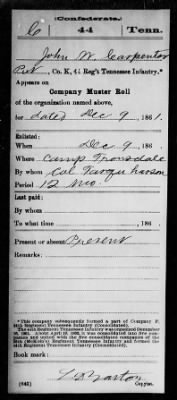 (Confederate.)
C 44 Tenn.
John W. Carpenter
Pvt, Co. K, 44 Reg't Tennessee Infantry.*
Appears on
Company Muster Roll
of the organization named above,
for dated Dec 9, 1861.
Enlisted:
When Dec 9, 186 .
Where Camp Trousdale
By whom Col
Period 12 mo.
Last paid:
By whom
To what time , 186 .
Present or absent Present
Remarks:
*This company subsequently formed a part of Company F,
44th Regiment Tennessee Infantry (Consolidated).
Book mark:
(642)
Copyist.